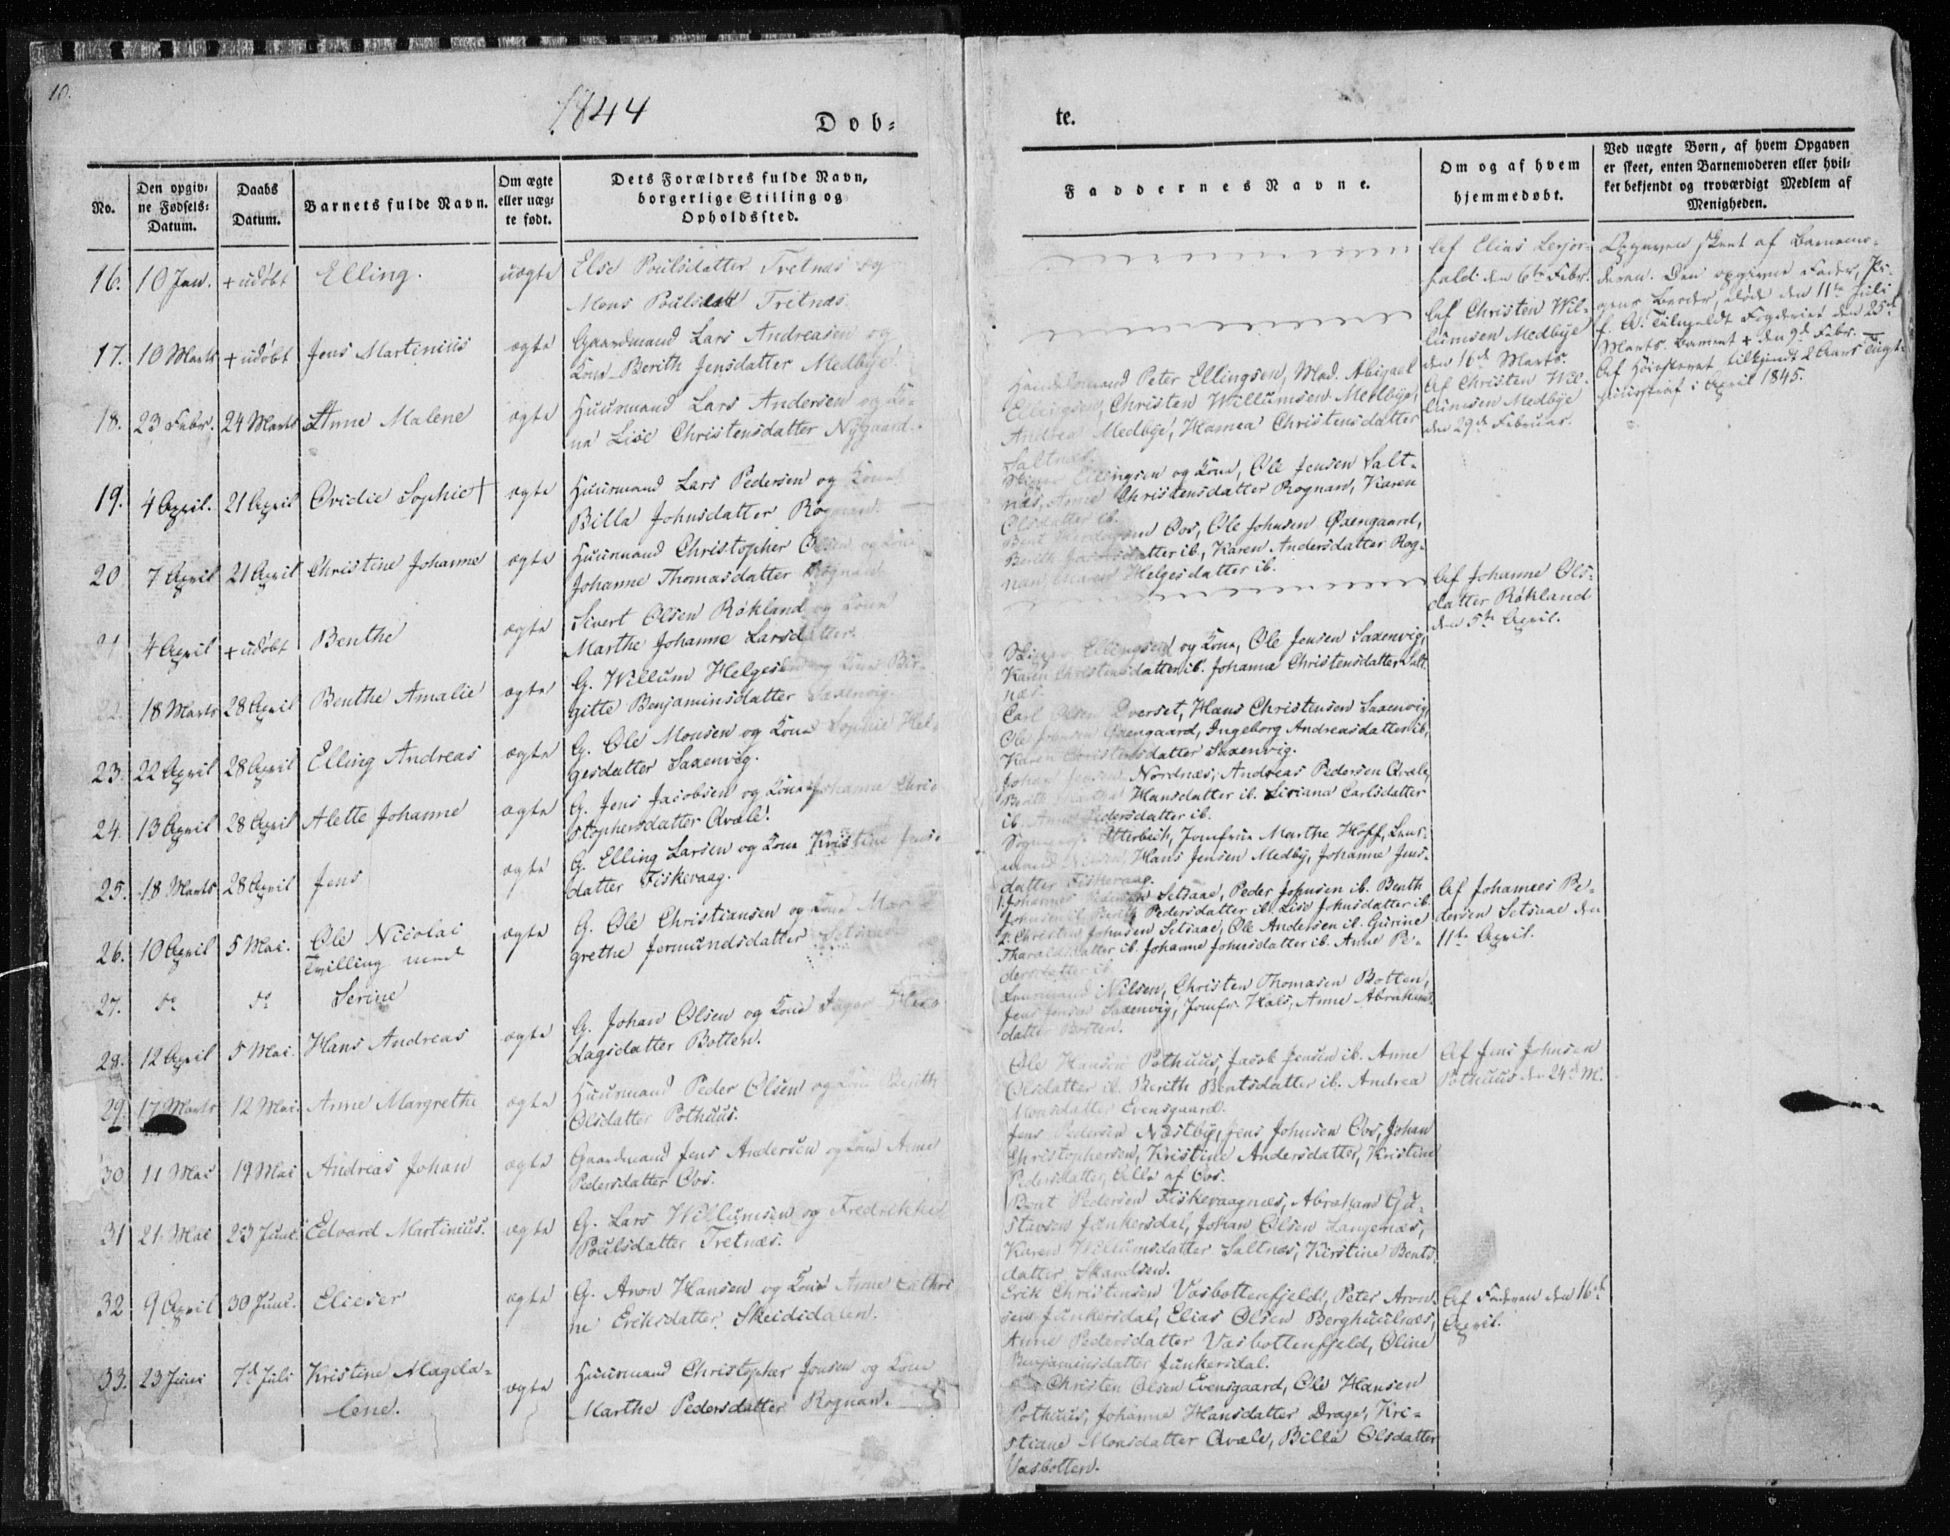 10.
1844
Døb-
No.
Den opgiv-
ne Fødsels-
Datum.
Daabs
Datum.
Barnets fulde Navn.
Om ægte
eller uæg-
te født.
Dets Forældres fulde Navn,
borgerlige Stilling og
Opholdssted.
16. 10 Jan. + udøbt Elling. uægte Else Poulsdatter Tretnæs og
Mons Poulsen Tretnæs.
17. 10 Marts + udøbt Jens Martinius ægte Gaardmand Lars Andreasen og
Kone Berith Jensdatter Medbye.
18. 23 Febr. 24 Marts Anne Malene ægte Huusmand Lars Andersen og Ko-
ne Lise Christensdatter Nygaard.
19. 4 April. 21 April Ovidie Sophie + ægte Huusmand Lars Pedersen og Kone
Billa Johnsdatter Rognan.
20 7 April 21 April Christine Johanne ægte Huusmand Christopher Olsen og Kone
Johanne Thomasdatter Rognan
21 4 April + udøbt Benthe ægte Sivert Olsen Røkland og Kone
Marthe Johanne Larsdatter.
22. 18 Marts 28 April Benthe Amalie ægte G. Willum Helgesen og Kone Bir-
gitte Benjaminsdatter Saxenvig.
23. 22 April 28 April Elling Andreas ægte G. Ole Monsen og Kone Sophie Hel-
gesdatter Saxenvig.
24. 13 April 28 April Alette Johanne ægte G. Jens Jacobsen og Kone Johanne Chri-
stophersdatter Qvæle.
25. 18 Marts 28 April Jens ægte G. Elling Larsen og Kone Kristine Jens-
datter Fiskevaag.
26. 10 April 5 Mai. Ole Nicolai ægte G. Ole Christiansen og Kone Mar-
Tvilling med grethe Jormundsdatter Setsaae
27. do do Serine
28. 12 April 5 Mai. Hans Andreas ægte G. Johan Olsen og Kone Inger Hær-
dagsdatter Botten.
29. 17 Marts 12 Mai Anne Margrethe ægte Huusmand Peder Olsen og Kone Berith
Olsdatter Pothuus.
30 11 Mai 19 Mai Andreas Johan ægte Gaardmand Jens Andersen og Kone Anne
Pedersdatter Oos.
31 21 Mai 23 Juni Edvard Martinius. ægte G. Lars Willumsen og Fredrikke
Poulsdatter Tretnæs.
32 9 April 30 Juni. Elieser ægte G. Aron Hansen og Kone Anne Cathri
ne Eriksdatter Skeididalen.
33. 23 Juni 7d Juli Kristine Magda- ægte Huusmand Christopher Jonsen og Kone
lene. Marthe Pedersdatter Rognan.
te.
Faddernes Navne.
Om og af hvem
hjemmedøbt.
Ved uægte Børn, af hvem Opgaven
er skeet, enten Barnemoderen eller hvil-
ket bekjendt og troværdigt Medlem af
Menigheden.
Af Elias Lerjor-
fald den 6te Febr.
Opgaven skeet af Barnemo-
deren. Den opgivne Fader,
døde den 11te Juli
den 25de
Marts. Barnet + den 9de Febr.
Af Høiesteret tilkjendt 2 Aars Tugt-
huusstraf i April 1845.
Af Christen Wil-
lumsen Medbye
den 16de Marts.
Handelsmand Peter Ellingsen, Mad. Abigael
Ellingsen, Christen Willumsen Medbye,
Andrea Medbye, Hanna Christensdatter
Saltnæs.
Af Christen Wil-
lumsen Medbye
den 29de Februar.
Ellingsen og Kone, Ole Jensen Salt-
næs, Anne Christensdatter Rognan, Karen
Olsdatter ib.
Bent Oos, Ole Johnsen Øxengaard,
Berith datter ib., Karen Andersdatter Rog-
nan, Helgesdatter ib.
Af Johanne Ols-
datter Røkland
den 5te April.
Ellingsen og Kone, Ole Jensen Saxenvig,
Karen Christensdatter ib. Johanna Christensdatter Salt
næs.
Carl Olsen Dverset, Hans Christensen Saxenvig,
Ole Jensen Øxengaard, Ingeborg Andreasdatter ib,
Karen Christensdatter Saxenvig.
Johan Jensen Nordnæs, Andreas Pedersen Qvæle,
Berith Hansdatter ib. Siriana Carlsdatter
ib. Anne Pedersdatter ib.
Utterbech, Jomfrue Marthe Hoff, Lens-
mand Nilsen, Hans Jensen Medby, Johanne Jens-
datter Fiskevaag.
1. Johannes Pedersen Setsaae, Peder Johnsen ib. Benth
Johnsen ib. Berith Pedersdatter ib. Lise Johnsdatter ib.
2. Christen Johnsen Setsaae, Ole Andersen ib. Gurine
Tharaldsdatter ib. Johanne Johnsdatter ib. Anne Pe-
dersdatter ib.
Af Johannes Pe-
dersen Setsaae den
11te April.
Lensmand Nilsen, Christen Thomasen Botten,
Jens Jensen Saxenvig, Jomfr. Hals, Anne Abrahams
datter Botten.
Ole Hansen Pothuus, Jacob Jensen ib. Anne
Olsdatter ib. Berith Bentsdatter ib. Andrea
Monsdatter Evensgaard.
Af Jens Johnsen
Pothuus den 24de M.
Jens Pedersen Næstby, Jens Johnsen Oos, Johan
Christophersen, Kristine Andersdatter, Kristine
Pedersdatter, Alle af Oos.
Bent Pedersen Fiskevaagnæs, Abraham Gu-
stavsen Junkersdal, Johan Olsen Langenæs,
Karen Willumsdatter Saltnæs, Kirstine Bents
datter Skandsen.
Erik Christensen Vasbottenfjeld, Peter Aron-
sen Junkersdal, Elias Olsen Berghuulnæs,
Anne Pedersdatter Vasbottenfjeld, Oline
Benjaminsdatter Junkersdal.
Af Faderen den 16de
April.
Christen Olsen Evensgaard, Ole Hansen
Pothuus, Johanne Hansdatter Drage, Kri-
stiane Monsdatter Qvæle, Billa Olsdatter
Vasbotten.